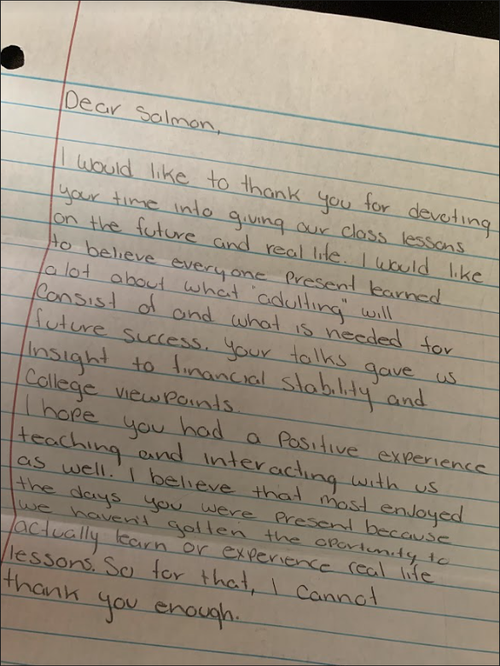 Dear Salmon,
I would like to thank you for devoting
your time into giving our class lessons
on the future and real life. I would like
to believe everyone present learned
alot about what "adulting" will
consist of and what is needed for
future success. Your talks gave us
insight to financial stability and
College viewpoints.
I hope you had a positive experience
teaching and interacting with us
as well. I believe that most enjoyed
the days you were present because
we haven't gotten the oportunity to
actually learn or experience real life
lessons. So for that, I cannot
thank you enough.